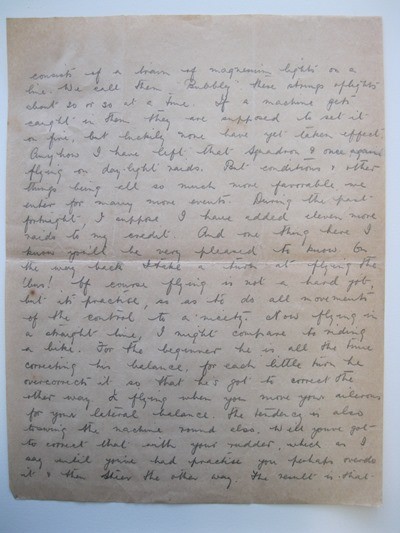 consists of a train of magnesium lights on a
line. We call them "Bubbly" these strings of lights
about 20 or 30 at a time. If a machine gets
caught in them they are supposed to set it
on fire, but luckily none have yet taken effect.
Anyhow I have left that Squadron & once again
flying on day-light raids. But conditions & other
things being all so much more favorable, we
enter for many more events. During the past
fortnight, I suppose I have added eleven more
raids to my credit. And one thing here I
know you'll be very pleased to know. On
the way back I take a turn at flying the
bus! Of course flying is not a hard job,
but it's practise, so as to do all movements
of the control to a nicety. Now flying in
a straight line, I might compare to riding
a bike. For the beginner he is all the time
correcting his balance, for each little turn he
overcorrects it so that he's got to correct the
other way. & flying when you move your ailerons
for your lateral balance. The tendency is also
towing the machine round also. Well you've got
to correct that with your rudder, which as I
say until you've had practise you perhaps overdo
it & then steer the other way. The result is that